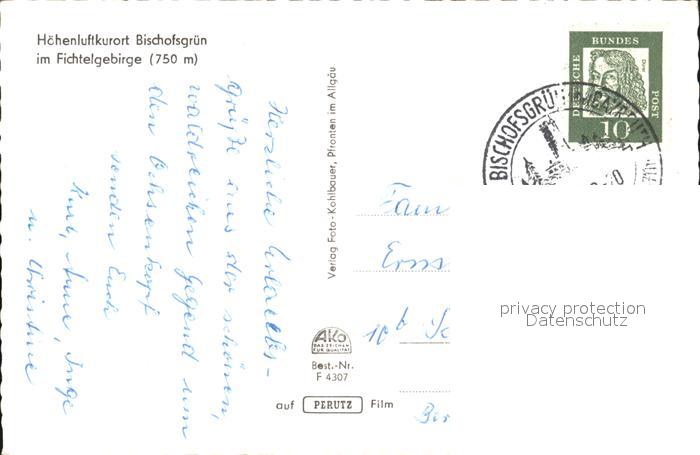 Höhenluftkurort Bischofsgrün
im Fichtelgebirge (750 m)
Herzliche Urlaubs-
grüße aus der schönen,
waldreichen Gegend um
den Ochsenkopf
senden Euch
Kurt, Anne, Inge
u. Christine
Verlag Foto-Kohlbauer, Pfronten im Allgäu
AKO
DAS ZEICHEN
FÜR QUALITÄT
Best.-Nr.
F 4307
auf PERUTZ Film
DEUTSCHE BUNDES POST
Dürer
10
BISCHOFSGRÜN
Fam
Erns
10b
Ber
privacy protection
Datenschutz